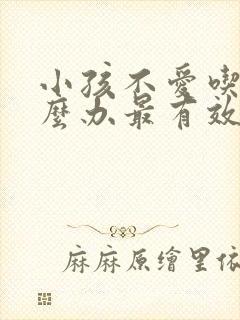 小孩不愛喫
麼办最有效
麻麻原繪里依